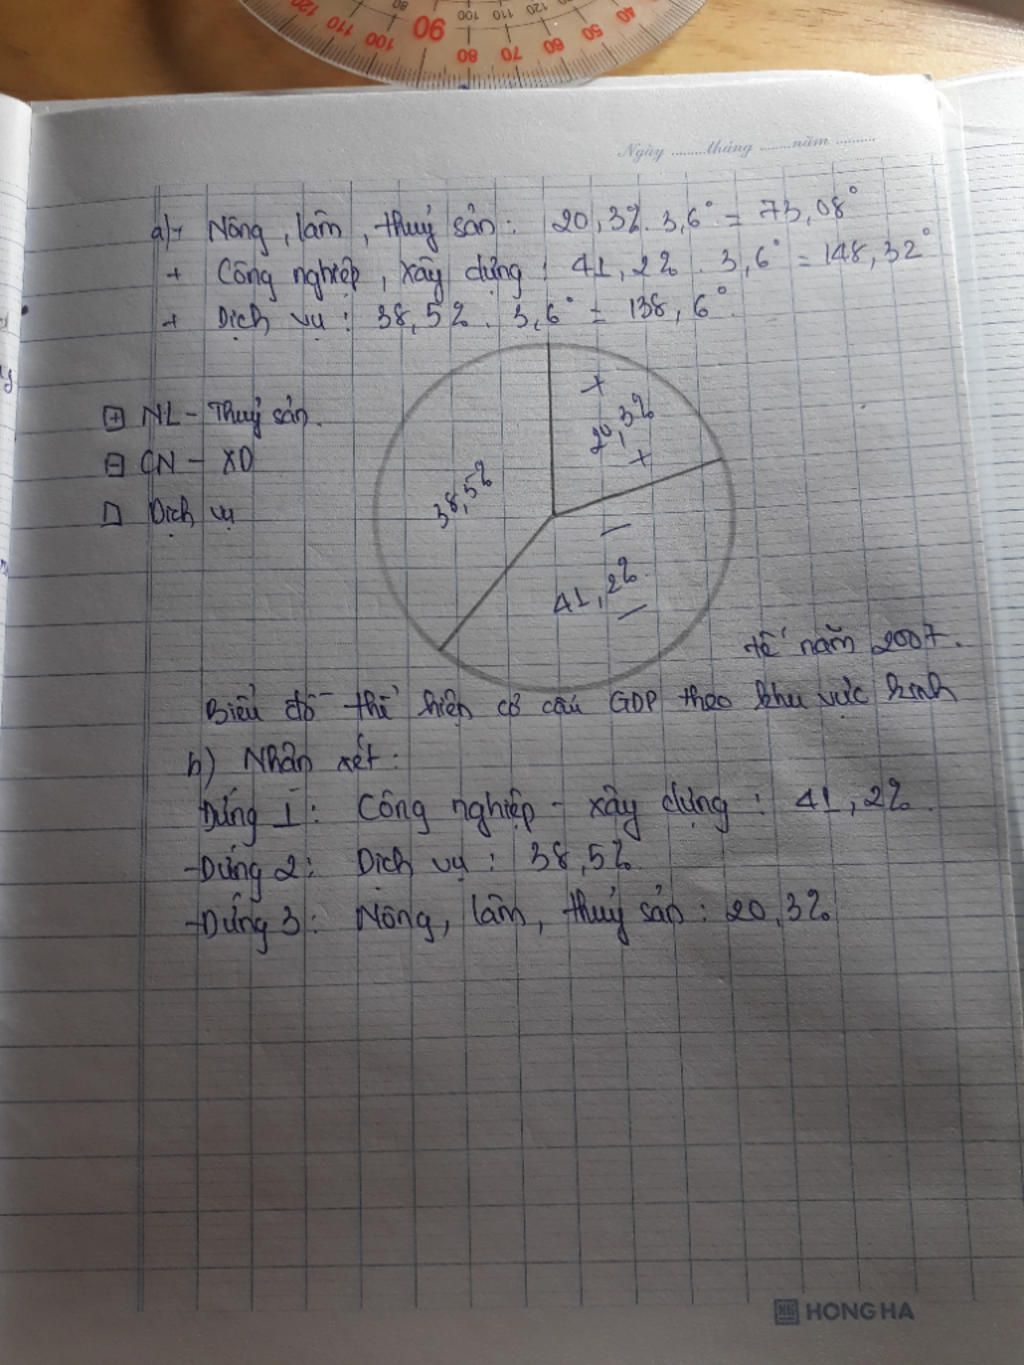 Ngày ........tháng ........năm ..........
a)+ Nông, lâm, thuỷ sản: 20,3%. 3,6° = 73,08°
+ Công nghiệp, xây dựng: 41,2%. 3,6° = 148,32°
+ Dịch vụ: 38,5%. 3,6° = 138,6°.
+
20,3%
+
NL - Thuỷ sản.
CN - XD
Dịch vụ
38,5%
41,2%.
tế năm 2007.
Biểu đồ thể hiện cơ cấu GDP theo khu vực kinh
b) Nhận xét:
Đứng 1: Công nghiệp - xây dựng: 41,2%.
-Đứng 2: Dịch vụ: 38,5%
-Đứng 3: Nông, lâm, thuỷ sản: 20,3%
HONG HA
90
110
100
80
70
60
50
40
110
120
100